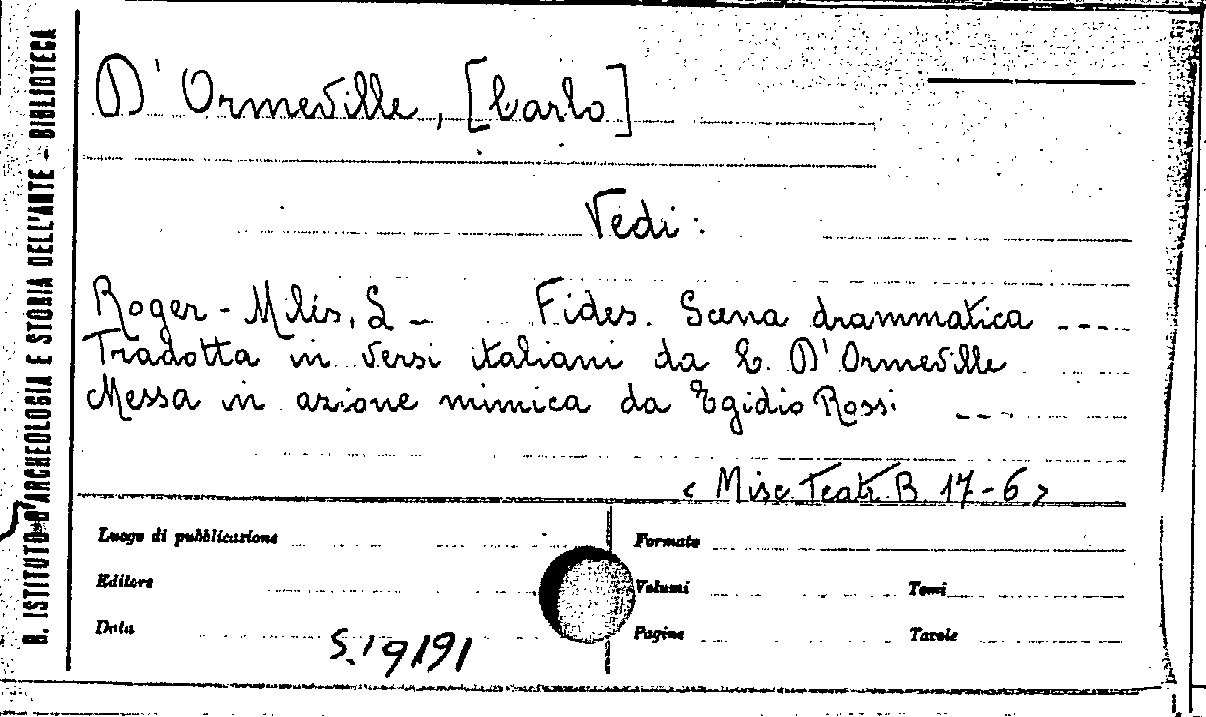 R. ISTITUTO D'ARCHEOLOGIA E STORIA DELL'ARTE - BIBLIOTECA
D'Ormeville, [Carlo]
Vedi:
Roger-Milés, L - Fides. Scena drammatica ----
Tradotta in versi italiani da C. D'Ormeville
Messa in azione mimica da Egidio Rossi ---
< Misc. Teatr. B. 17-6 >
Luogo di pubblicazione
Formato
Editore
Volumi
Tomi
Data
Pagine
Tavole